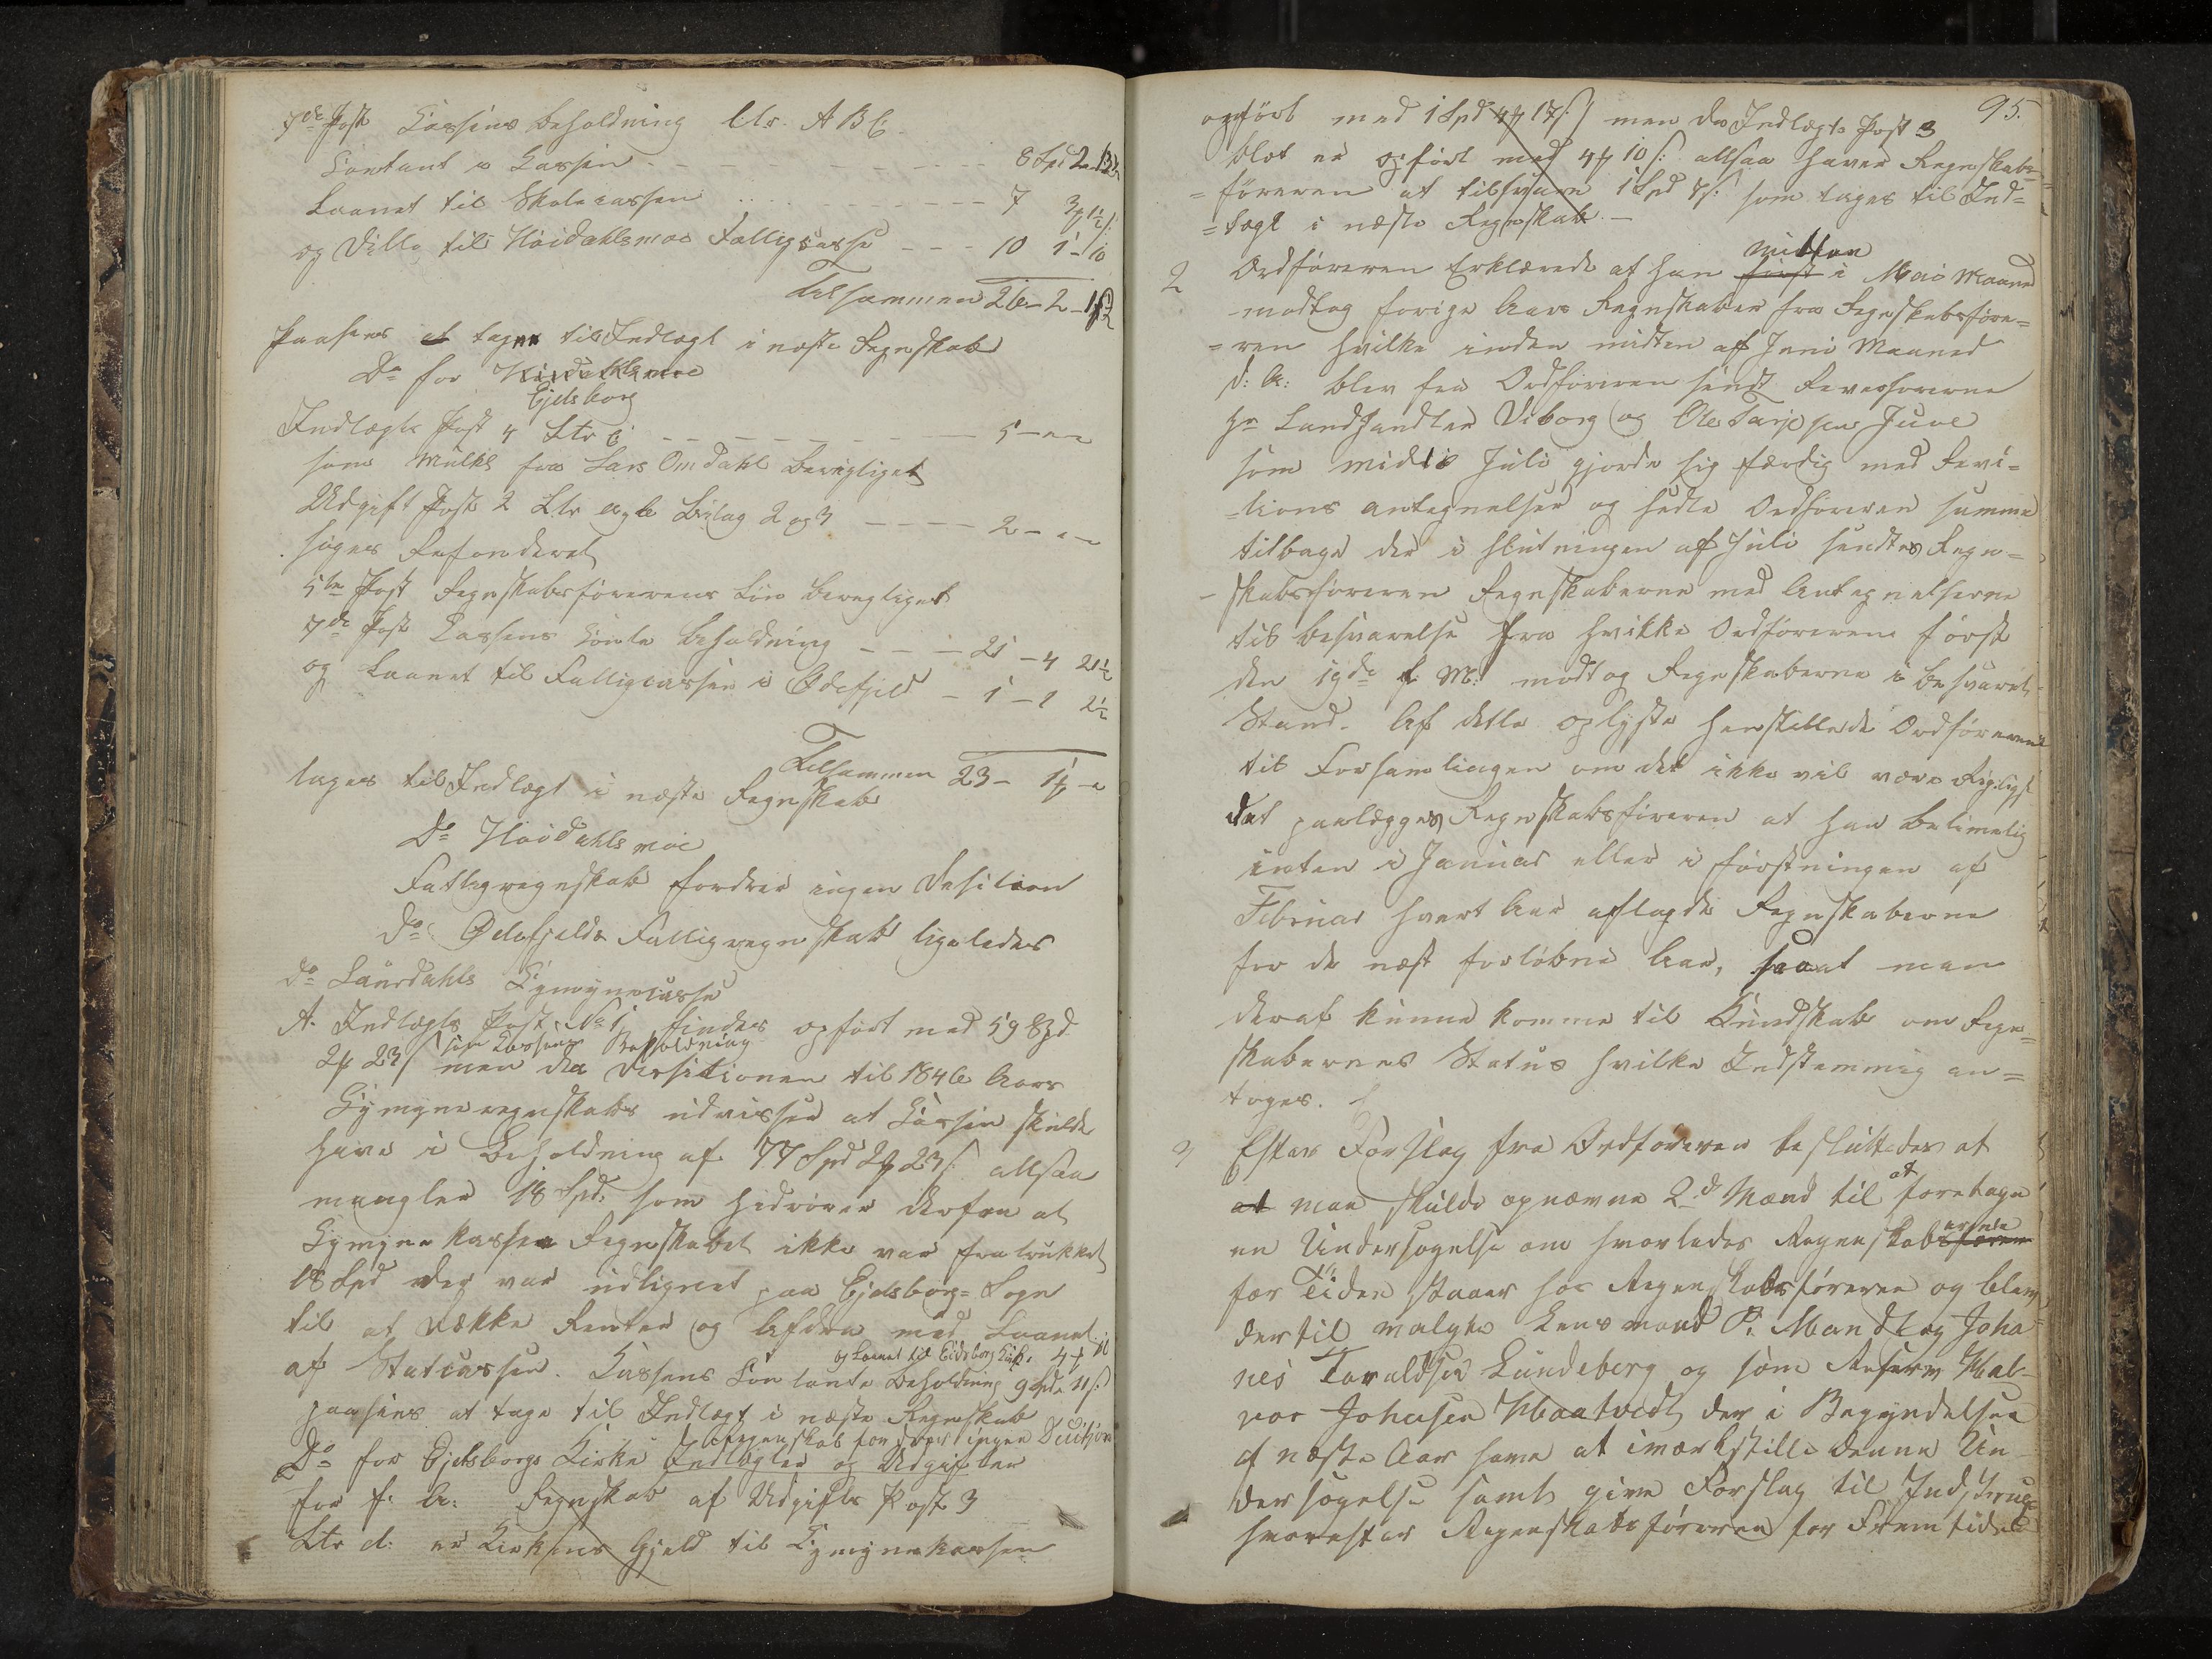 7de Post Cassens beholdning Ltr. A B C.
Contant i Cassen - - - 8 Spd 2 - 13½
Laanet til Skolecassen - - - 7 3# 1½ s:
og Ditto til Höidahlsmoe Fattigcasse - - - 10 1 - 10
Tilsammen 26 - 2 - 1
Paasees at tages til Indtægt i næste Regnskab
Do for Höidahlsmoe
Ejdsborg
Indtægts Post 4 Ltr C - - - 5 - " - "
som Mulkt fra Lars Omdahl berigtiget
Udgift Post 2 Ltr a og b Bilag 2 og 3 - - - - 2 - " - "
siges Refonderet
5te Post Regnskabsførerens Løn berigtiget
7de Post Cassens Contante beholdning - - - 21 - 4 21½
og Laanet til Fattigcassen i Ødefjeld - 1 - 1 2½
Tilsammen 23 - 1# - "
tages til Indtægt i næste Regnskab
Do Höidahlsmoe
Fattigregnskab fordrer ingen Desition
Do Ødefjelds Fattigregnskab ligeledes
Do Laurdahls Kymynecasse
A. Indtægts Post No 1 findes opført med 59 Spd
som Cassens Beholdning
2# 23 s men da Desitionen til 1846 Aars
Kymyneregnskabs udvisser at Cassen skulde
have i Beholdning af 77 Spd 2# 23 s: altsaa
mangler 18 Spd: som hidrører derfra at
Kymynekassen Regnskabet ikke var fratrukket
18 Spd der var udlignet paa Ejdsborg Sogn
til at dække Renter og Afdra med Laanet
af Statcassen. Cassens Contante Beholdning 9 Spd " 11 s:
og Laanet til Eidsborg Kirke 4# 10
paasees at tage til Indtægt i næste Regnskab
Regenskab fordrer ingen Decition
Do for Ejdsborgs Kirke Indtægter og Udgifter
for f. A: Regnskab af Udgifts Post 3
Ltr d: er Kirkens Gjeld til Kymynekassen
95.
opført med 1 Spd 4# 17 s: men da Indtægts Post 3
blot er opført med 4# 10 s: altsaa haver Regnskabs=
=føreren at tilsvare 1 Spd 7 s: som tages til Ind=
=tægt i næste Regnskab. -
2 Ordføreren Erklærede at han først i Mai Maaned
midten
modtog forige Aars Regnskaber fra Regnskabsføre=
=ren hvilke inden midten af Juni Maaned
d: A: blev fra Ordføreren sendt Revisorerne
Hr Landhandler Viborg og Ole Tarjesen Juve
som midt i Juli gjorde sig færdig med Revi=
=tions antegnelser og sendte Ordføreren samme
tilbage der i slutningen af Juli sendtes Regn=
=skabsføreren Regnskaberne med Antegnelserne
til besvarelse fra hvilke Ordføreren først
den 19de f. M: modtog Regnskaberne i besvaret
Stand. Af dette oplyste henstillede Ordføreren
til Forsamlingen om det ikke vil være Rigtigst
det paalægges Regnskabsføreren at han betimelig
inten i Januar eller i førstningen af
Februar hvert Aar aflagde Regnskaberne
for de næst forløbne Aar, saaat man
deraf kunne komme til Kundskab om Regn=
skabernes Status hvilke Indstemmig an=
toges.
3 Efter Forslag fra Ordføreren besluttedes at
at man skulde opnævne 2de Mænd til at foretage
en Undersøgelse om hvorledes Regenskabsføren
erne
for Tiden staaer hos Regenskabsføreren og blev
dertil valgte Lensmand P. Mandt og Joha=
nes Tovaldsen Lundeberg og som Reserv Hal=
vor Johnsen Haatvedt der i Begyndelsen
af næste Aar have at iværkstille denne Un=
dersøgelse samt give Forslag til Indstrux
hvorefter Regenskabsføreren for Fremtiden